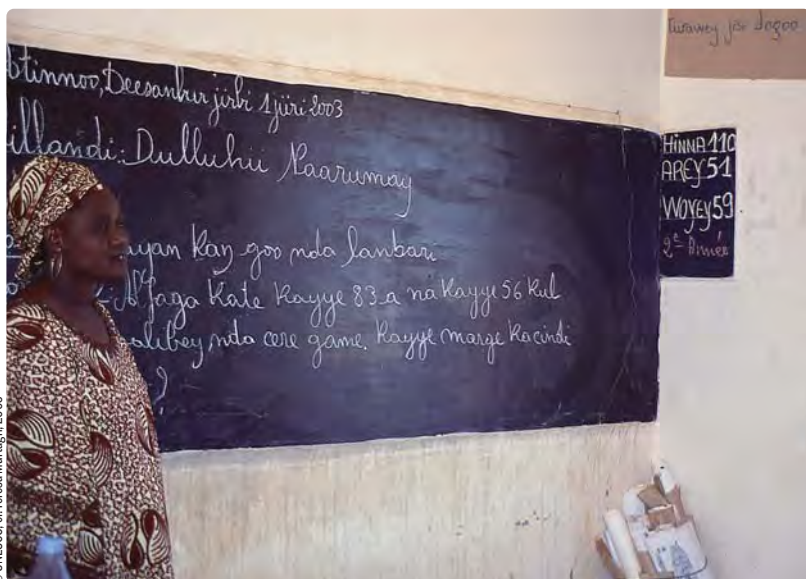 Atinnoo, Deesanbur jirbi 1 jiiri 2003
illandi: Dulluhii Kaarumay
ayan kaŋ goo nda lanbari
N'jaga kate kayye 83. a na kayye 56 kul
alibey nda cere game. kayye marge ka cindi
?
jɛr dogoo
HINNA 110
AREY 51
WOYEY 59
2e Année